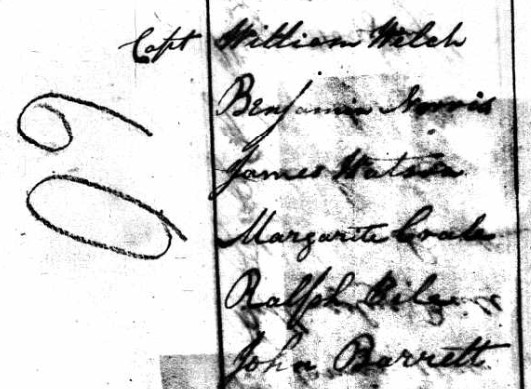 Capt William Welch
Benjamin Norris
James Watson
Margarite
Ralph
John Barrett